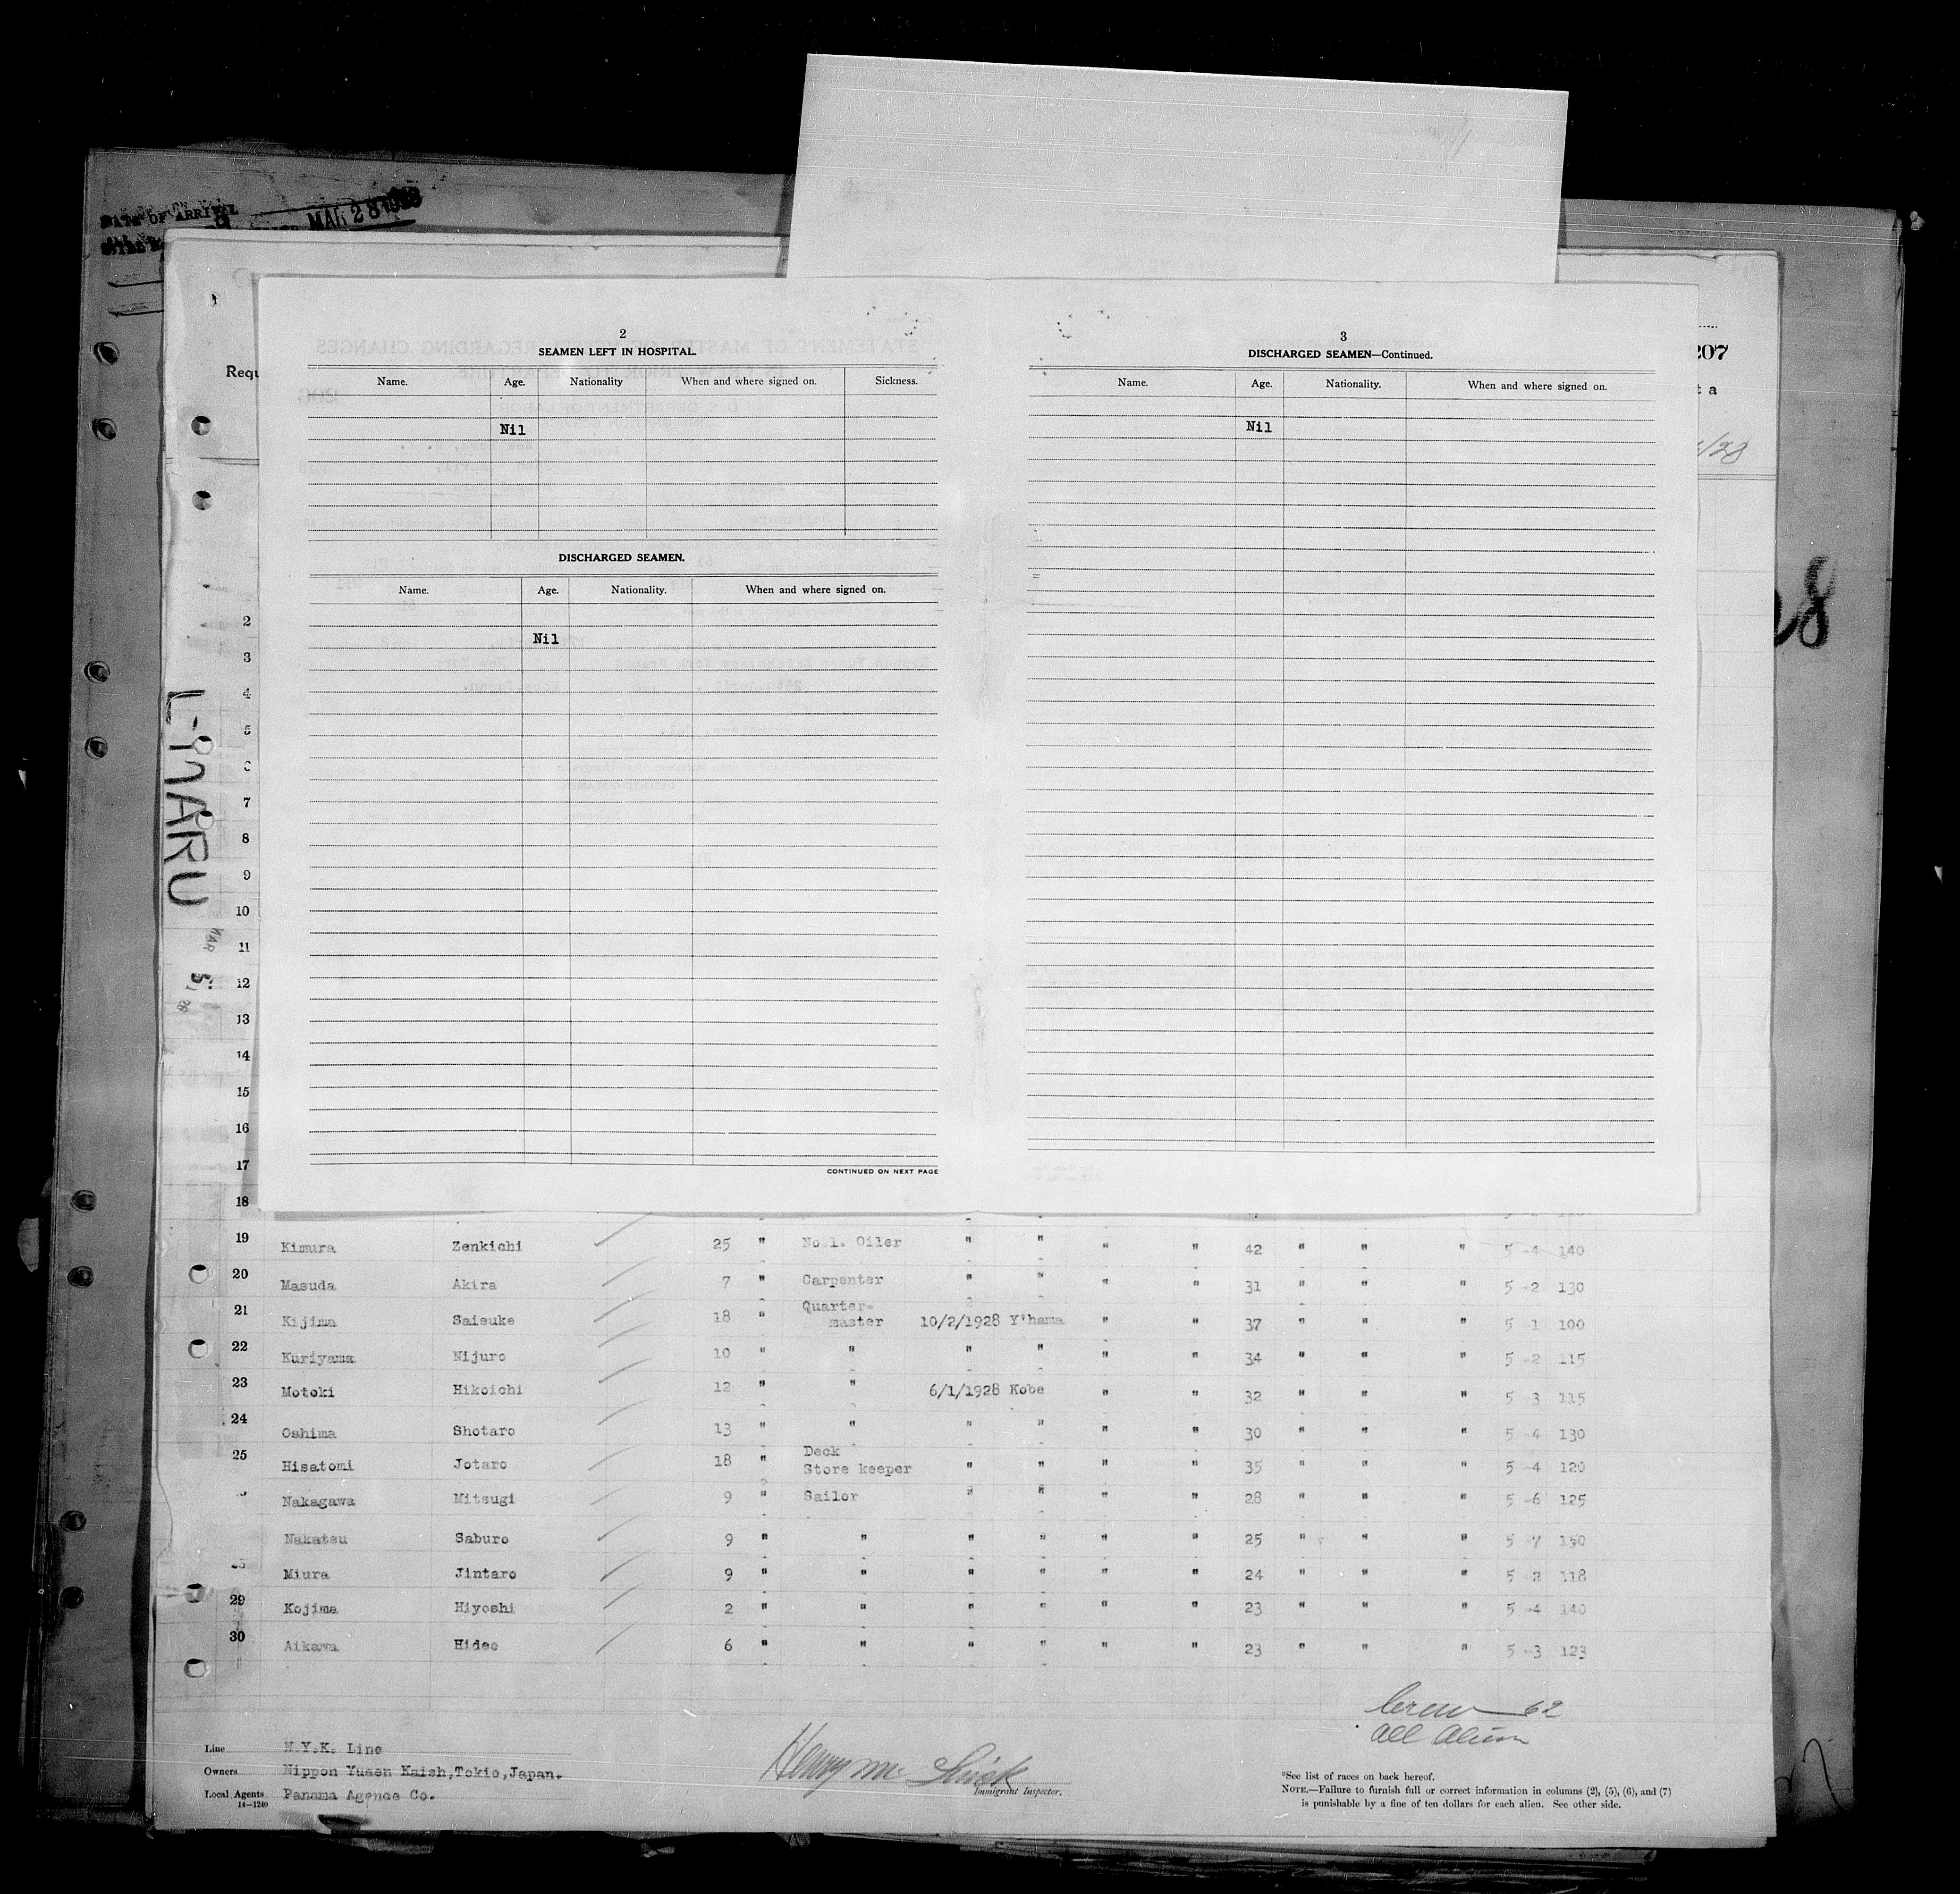 DATE OF ARRIVAL
MAR 28 1928
207
Requ
t a
/28
2
SEAMEN LEFT IN HOSPITAL.
Name. Age. Nationality When and where signed on. Sickness.
Nil
DISCHARGED SEAMEN.
Name. Age. Nationality. When and where signed on.
Nil
CONTINUED ON NEXT PAGE
3
DISCHARGED SEAMEN—Continued.
Name. Age. Nationality. When and where signed on.
Nil
L-MARU
MAR 5 1928
2
3
4
5
7
8
9
10
11
12
13
14
15
16
17
18
19 Kimura Zenkichi 25 " No 1. Oiler " " " " 42 " " " 5 -4 140
20 Masuda Akira 7 " Carpenter " " " " 31 " " " 5 -2 130
21 Kijima Saisuke 18 " Quarter-
master 10/2/1928 Y'hama " " 37 " " " 5 -1 100
22 Kuriyama Nijuro 10 " " " " " " 34 " " " 5 -2 115
23 Motoki Hikoichi 12 " " 6/1/1928 Kobe " " 32 " " " 5 -3 115
24 Oshima Shotaro 13 " " " " " " 30 " " " 5 -4 130
25 Hisatomi Jotaro 18 " Deck
Store keeper " " " " 35 " " " 5 -4 120
Nakagawa Mitsugi 9 " Sailor " " " " 28 " " " 5 -6 125
Nakatsu Saburo 9 " " " " " " 25 " " " 5 -7 150
Miura Jintaro 9 " " " " " " 24 " " " 5 -2 118
29 Kojima Hiyoshi 2 " " " " " " 23 " " " 5 -4 140
30 Aikawa Hideo 6 " " " " " " 23 " " " 5 -3 123
Crew 62
All Alien
Line N.Y.K. Line
Owners Nippon Yusen Kaish,Tokio,Japan.
Local Agents Panama Agence Co.
14—1240
Henry Mc
Immigrant Inspector.
*See list of races on back hereof.
NOTE.—Failure to furnish full or correct information in columns (2), (5), (6), and (7)
is punishable by a fine of ten dollars for each alien. See other side.